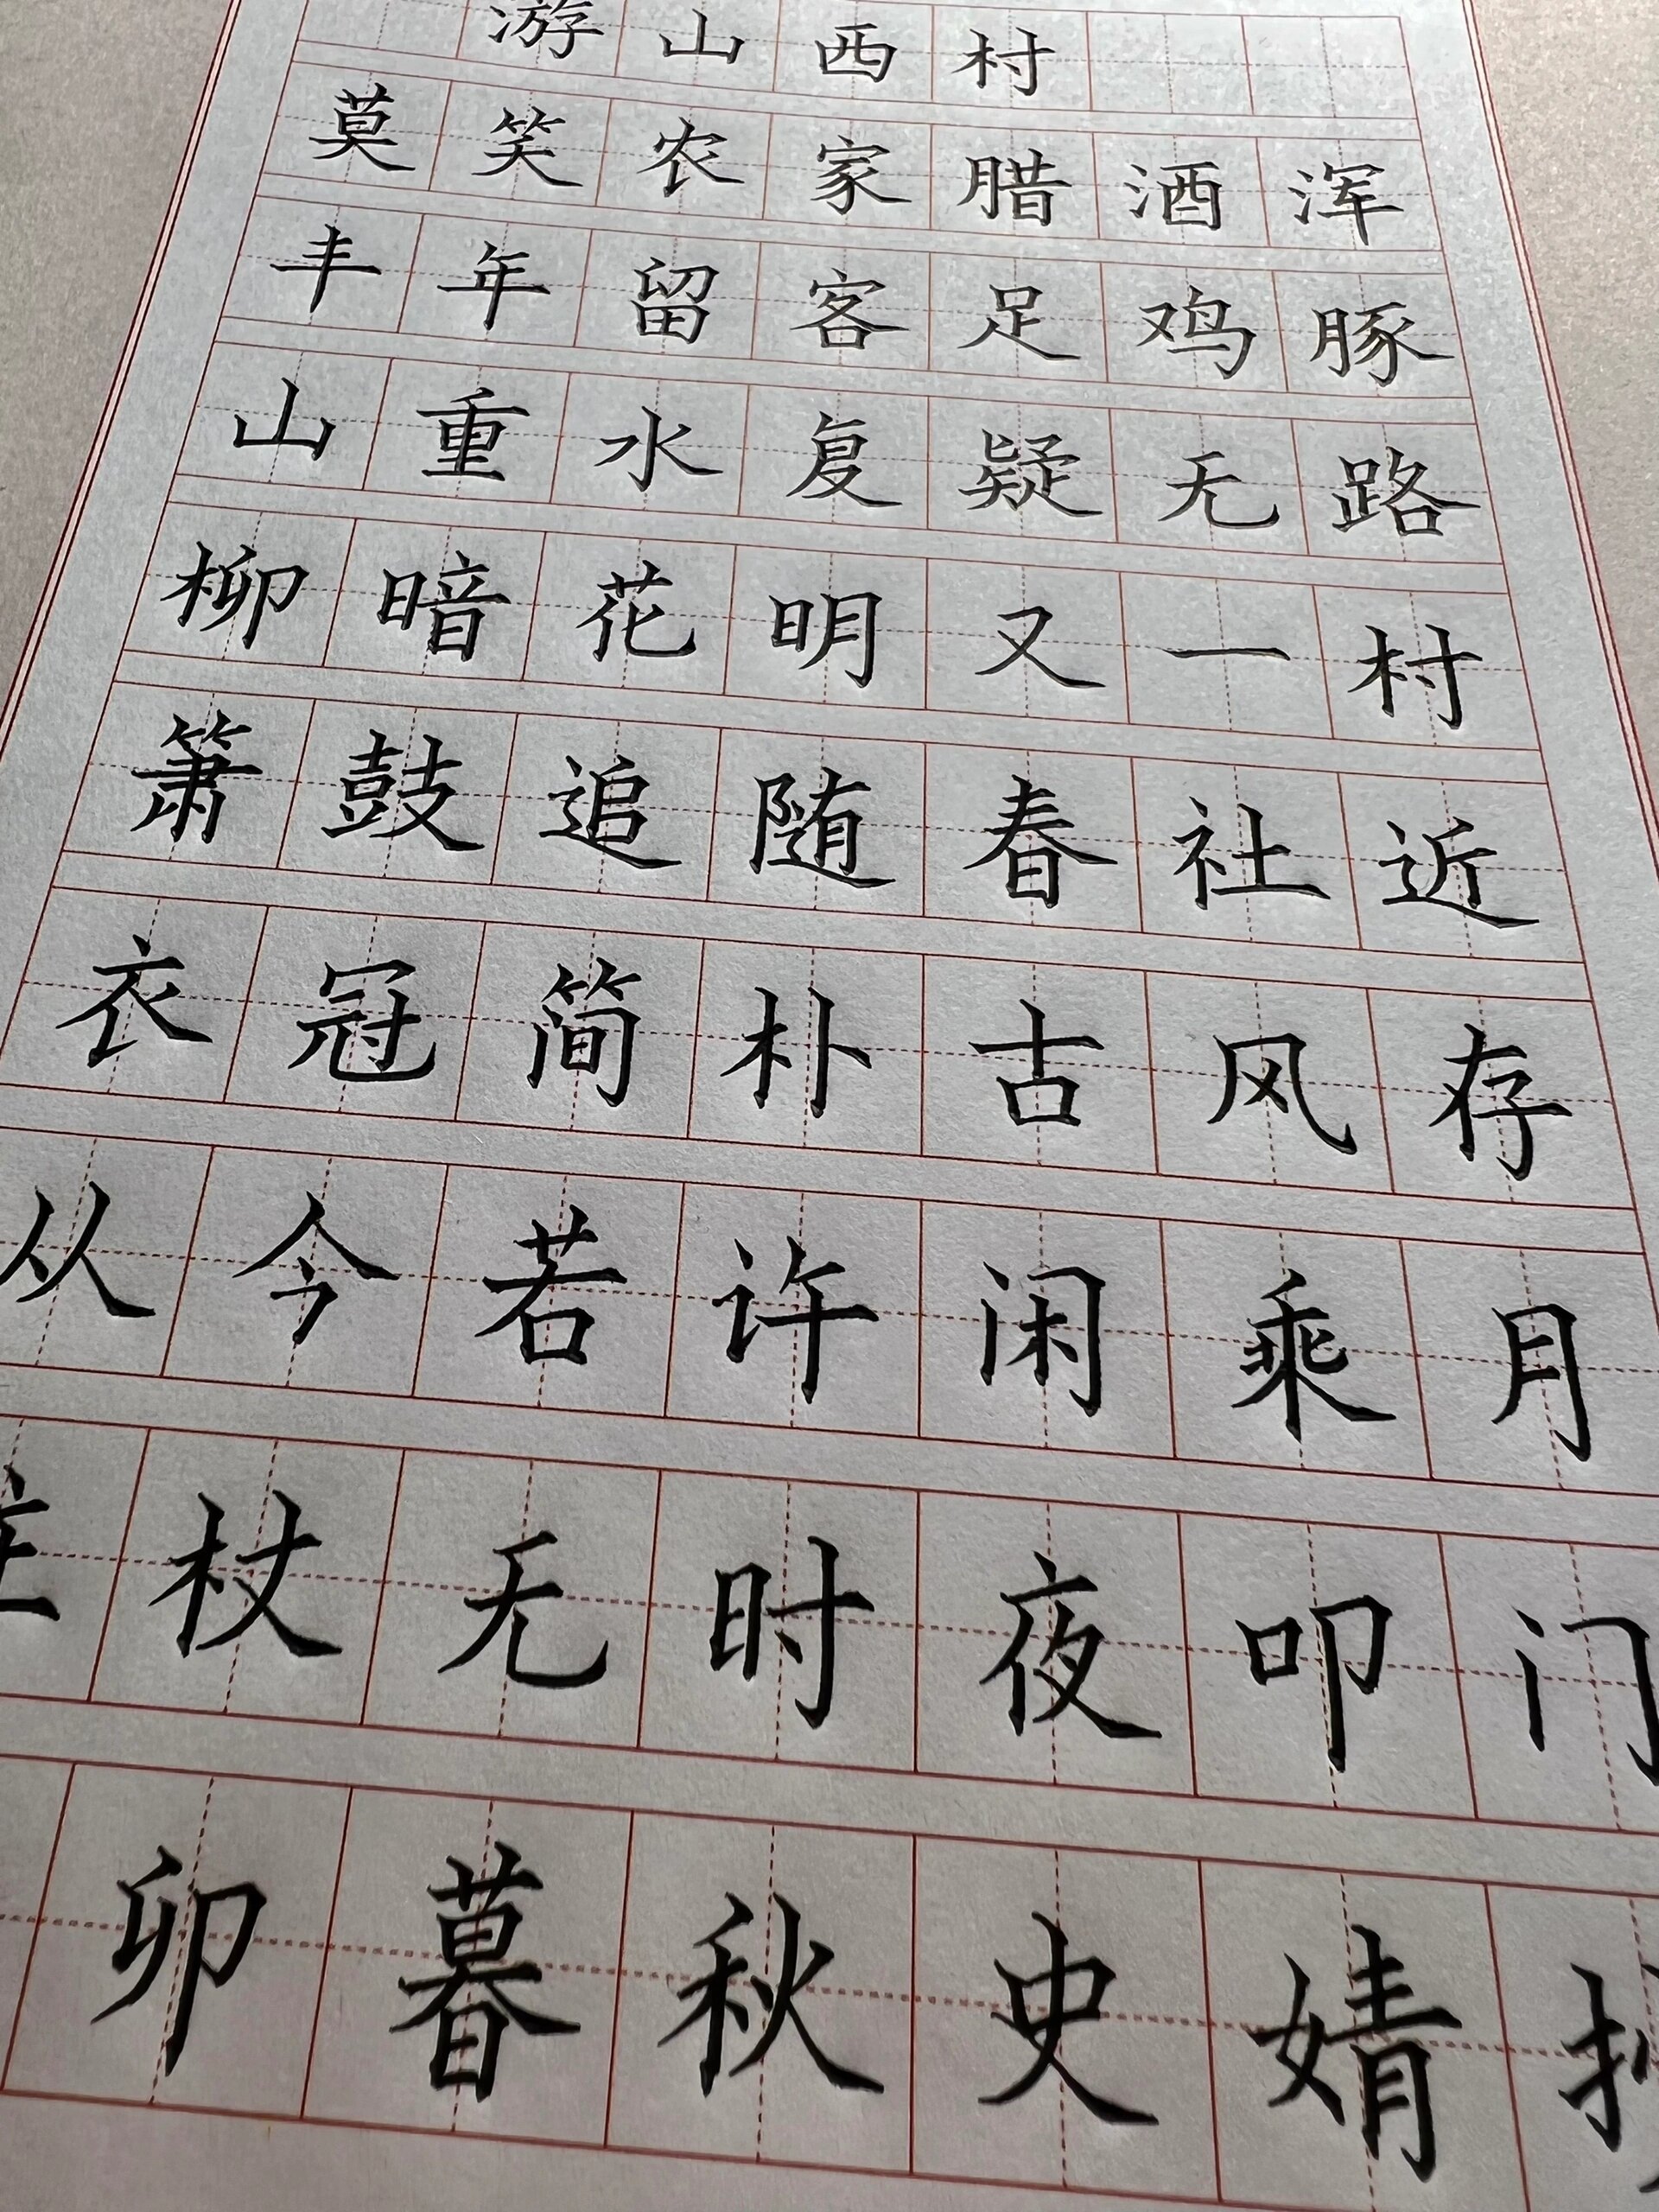 游山西村
莫笑农家腊酒浑
丰年留客足鸡豚
山重水复疑无路
柳暗花明又一村
箫鼓追随春社近
衣冠简朴古风存
从今若许闲乘月
杖无时夜叩门
卯暮秋史婧